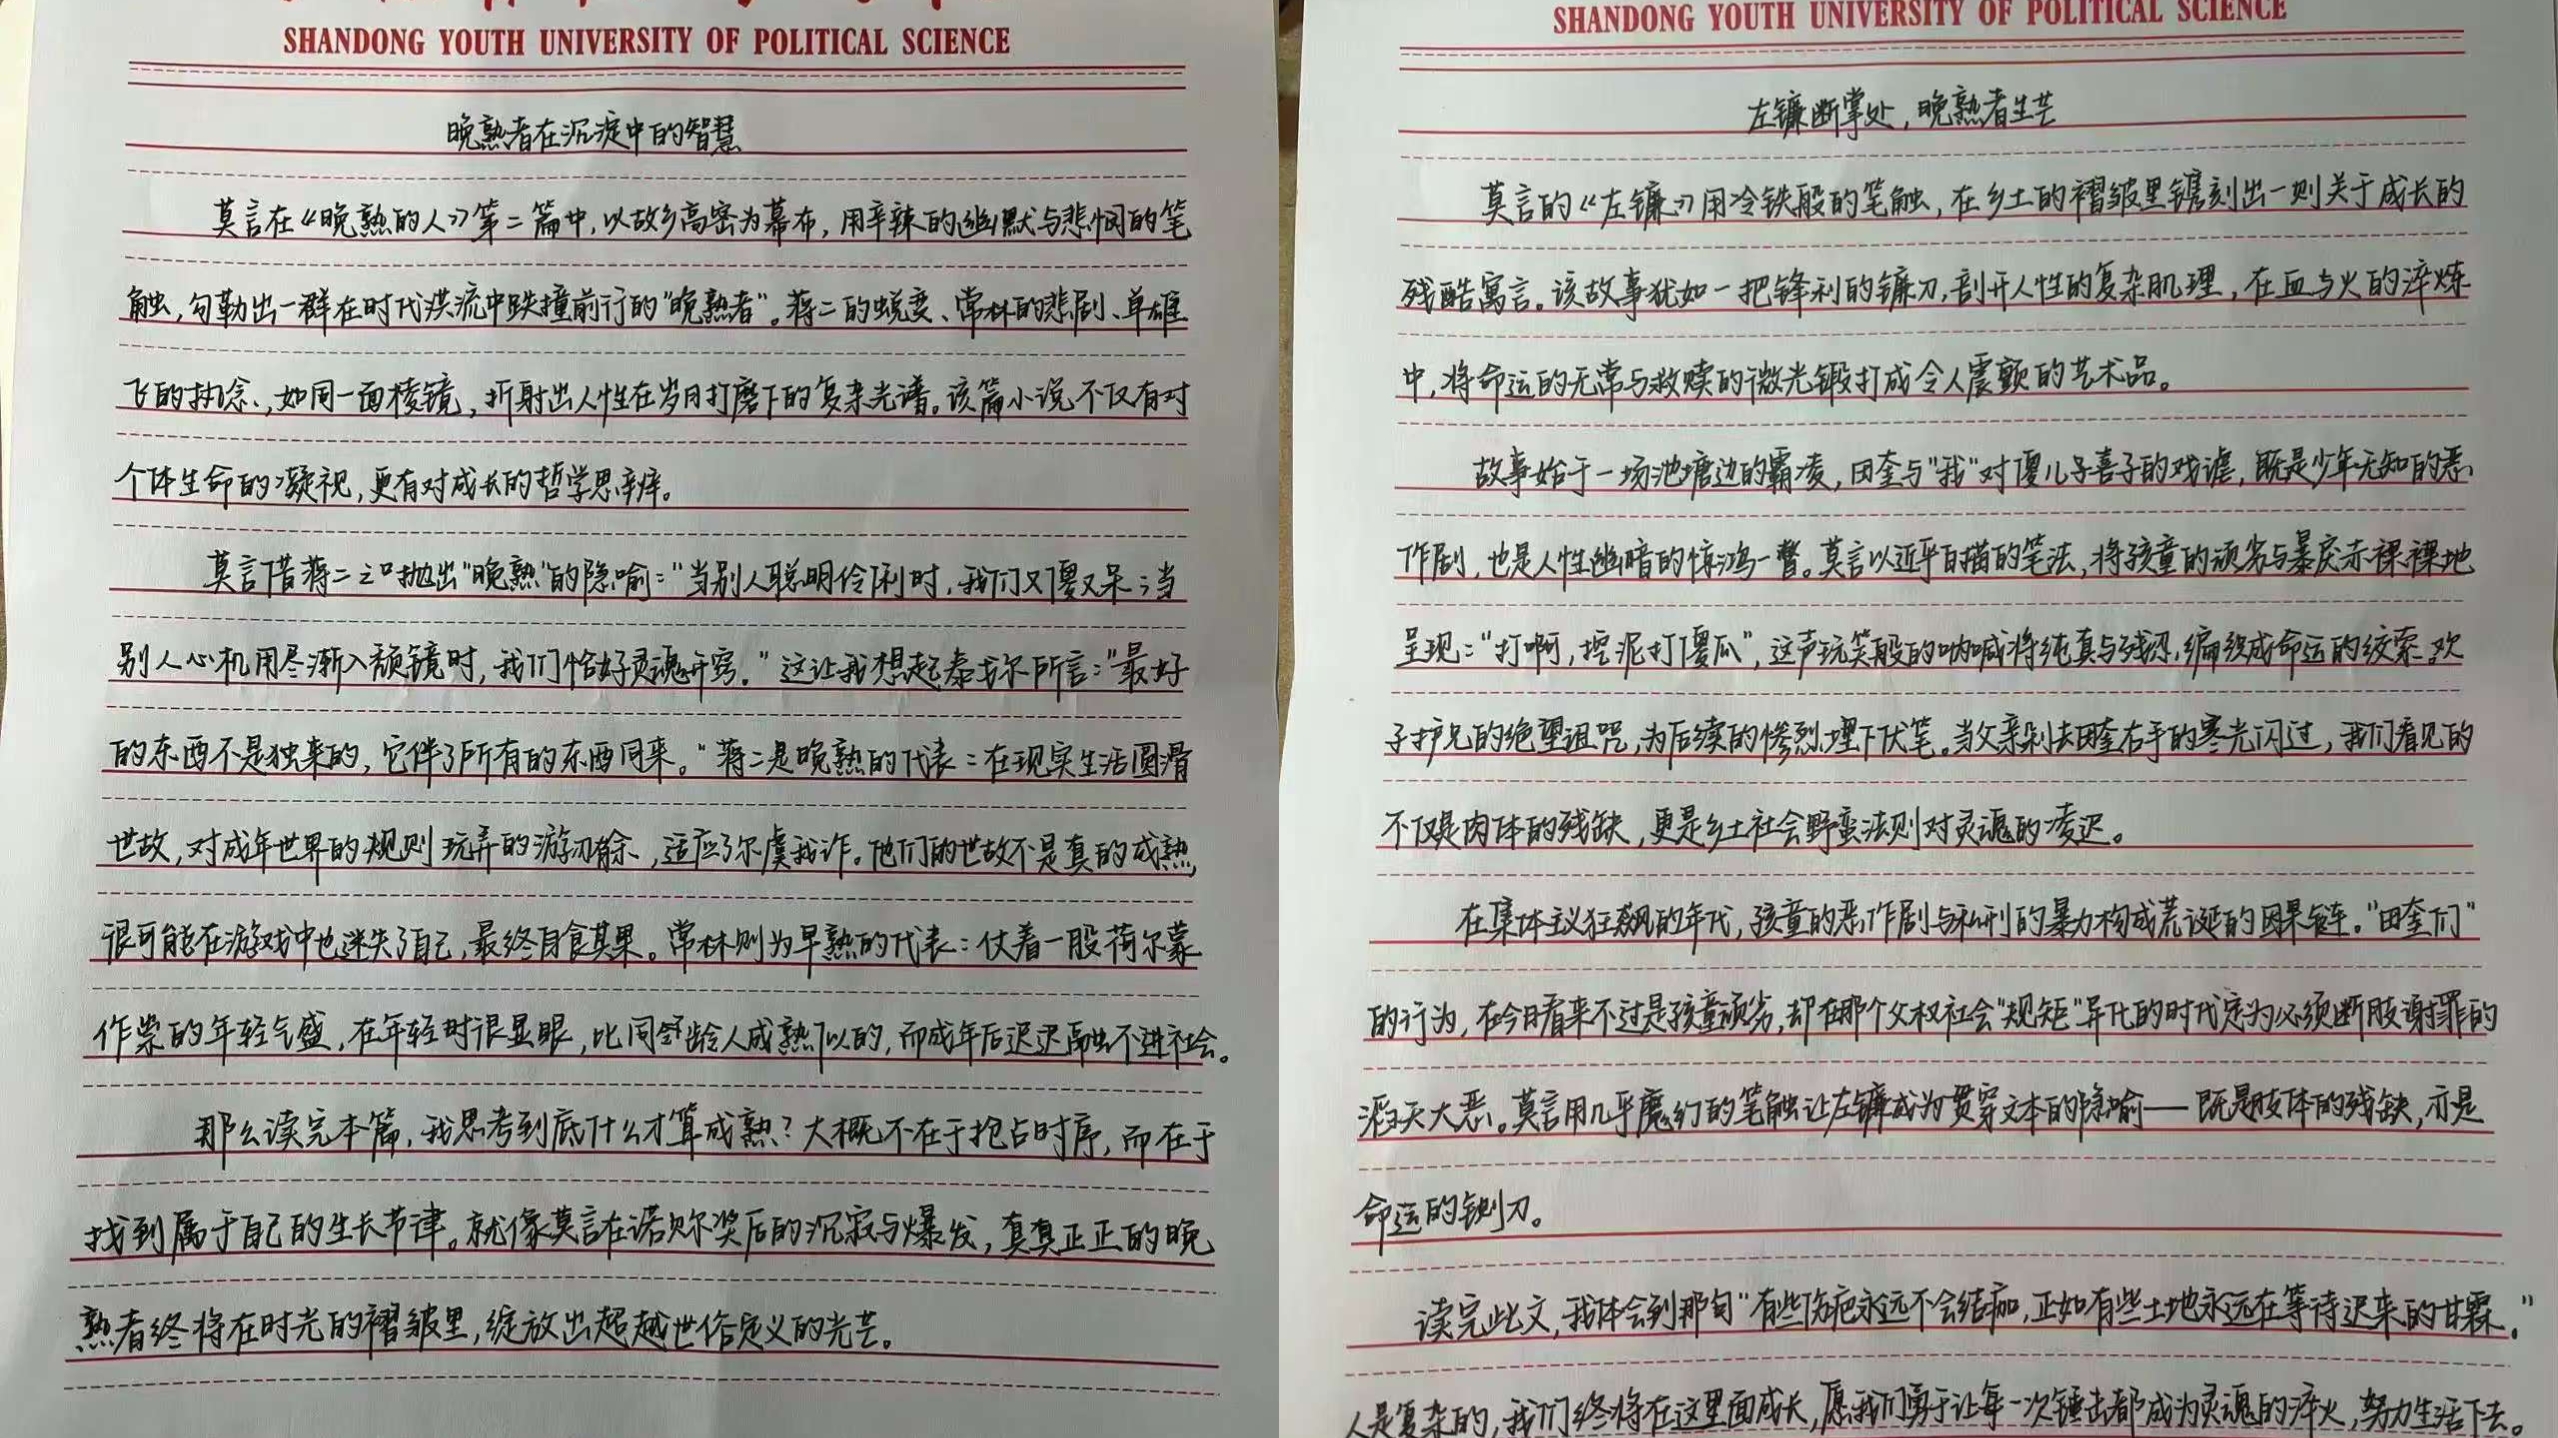 SHANDONG YOUTH UNIVERSITY OF POLITICAL SCIENCE
晚熟者在沉淀中的智慧
莫言在《晚熟的人》第二篇中,以故乡高密为幕布,用辛辣的幽默与悲悯的笔
触,勾勒出一群在时代洪流中跌撞前行的"晚熟者"。蒋二的蜕变、常林的悲剧、单雄
飞的执念,如同一面棱镜,折射出人性在岁月打磨下的复杂光谱。该篇小说不仅有对
个体生命的凝视,更有对成长的哲学思辨。
莫言借蒋二之口抛出"晚熟"的隐喻:"当别人聪明伶俐时,我们又傻又呆;当
别人心机用尽渐入颓镜时,我们恰好灵魂开窍。"这让我想起泰戈尔所言:"最好
的东西不是独来的,它伴了所有的东西同来。"蒋二是晚熟的代表:在现实生活圆滑
世故,对成年世界的规则玩弄的游刃有余,适应了尔虞我诈。他们的世故不是真的成熟,
很可能在游戏中也迷失了自己,最终自食其果。常林则为早熟的代表:仗着一股荷尔蒙
作祟的年轻气盛,在年轻时很显眼,比同龄人成熟似的,而成年后迟迟融不进社会。
那么读完本篇,我思考到底什么才算成熟?大概不在于抢占时序,而在于
找到属于自己的生长节律。就像莫言在诺贝尔奖后的沉寂与爆发,真真正正的晚
熟者终将在时光的褶皱里,绽放出超越世俗定义的光芒。
SHANDONG YOUTH UNIVERSITY OF POLITICAL SCIENCE
左镰断掌处,晚熟者生芒
莫言的《左镰》用冷铁般的笔触,在乡土的褶皱里镌刻出一则关于成长的
残酷寓言。该故事犹如一把锋利的镰刀,剖开人性的复杂肌理,在血与火的淬炼
中,将命运的无常与救赎的微光锻打成令人震颤的艺术品。
故事始于一场池塘边的霸凌,田奎与"我"对傻儿子喜子的戏谑,既是少年无知的恶
作剧,也是人性幽暗的惊鸿一瞥。莫言以近乎白描的笔法,将孩童的顽劣与暴戾赤裸裸地
呈现:"打啊,挖泥打傻瓜",这声玩笑般的呐喊将纯真与残忍编织成命运的绞索,欢
子护兄的绝望诅咒,为后续的惨烈埋下伏笔。当父亲剁去田奎右手的寒光闪过,我们看见的
不仅是肉体的残缺,更是乡土社会野蛮法则对灵魂的凌迟。
在集体主义狂飙的年代,孩童的恶作剧与私刑的暴力构成荒诞的因果链。"田奎们"
的行为,在今日看来不过是孩童顽劣,却在那个父权社会"规矩"异化的时代定为必须断肢谢罪的
滔天大恶。莫言用几乎魔幻的笔触让左镰成为贯穿文本的隐喻——既是肢体的残缺,亦是
命运的铡刀。
读完此文,我体会到那句"有些伤疤永远不会结痂,正如有些土地永远在等待迟来的甘霖。"
人是复杂的,我们终将在这里面成长,愿我们勇于让每一次锤击都成为灵魂的淬火,努力生活下去。